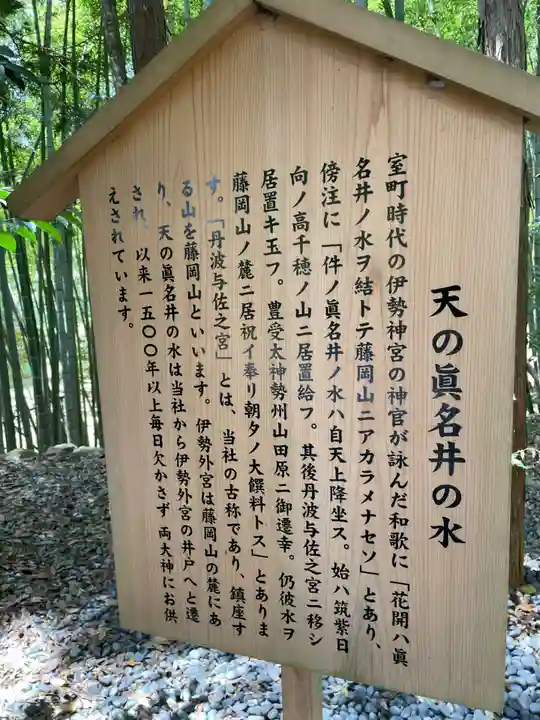 天の眞名井の水
室町時代の伊勢神宮の神官が詠んだ和歌に「花開ハ眞
名井ノ水ヲ結トテ藤岡山ニアカラメナセソ」とあり、
傍注に「件ノ眞名井ノ水ハ自天上降坐ス。始ハ筑紫日
向ノ高千穂ノ山ニ居置給フ。其後丹波与佐之宮ニ移シ
居置キ玉フ。豊受太神勢州山田原ニ御遷幸。仍彼水ヲ
藤岡山ノ麓ニ居祝イ奉リ朝夕ノ大饌料トス」とありま
す。「丹波与佐之宮」とは、当社の古称であり、鎮座す
る山を藤岡山といいます。伊勢外宮は藤岡山の麓にあ
り、天の眞名井の水は当社から伊勢外宮の井戸へと遷
され、以来一五〇〇年以上毎日欠かさず 両大神にお供
えされています。